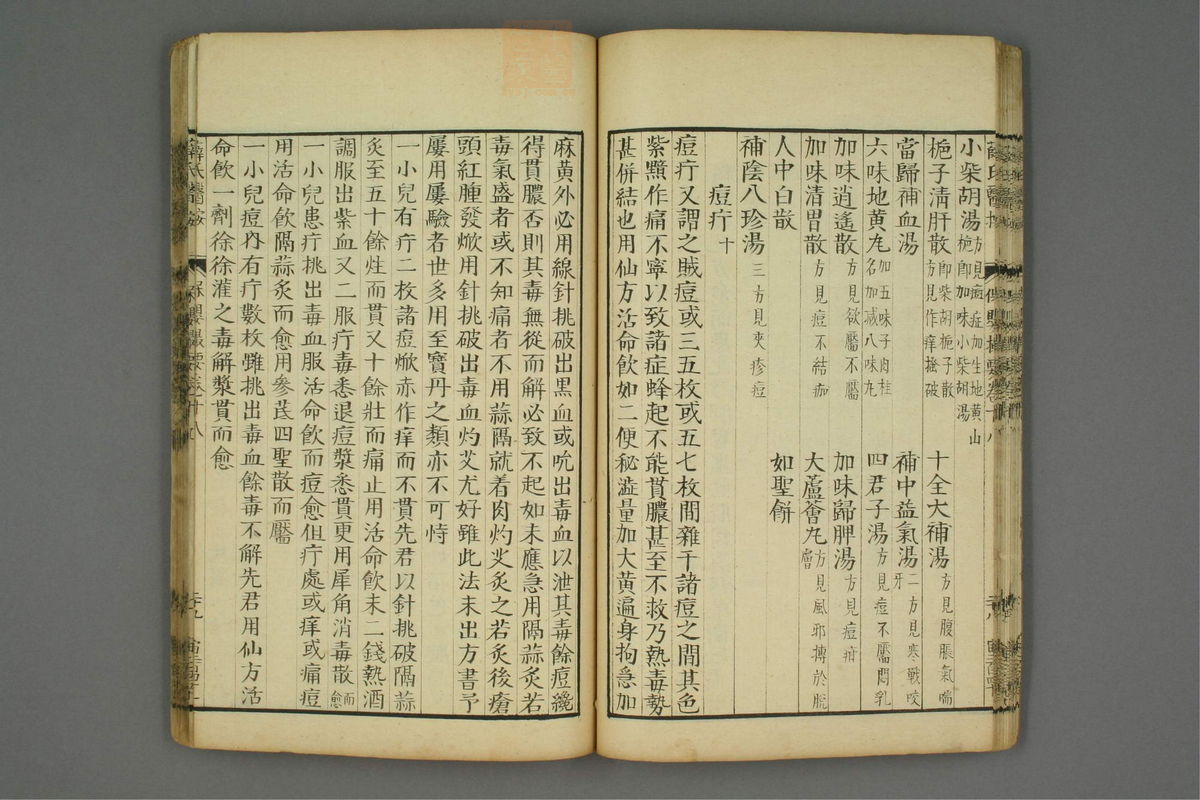 小柴胡湯方見痘症加生地黃山梔卽加味小柴胡湯
梔子淸肝散卽柴胡梔子散方見作痒搔破 十全大補湯方見腹脹氣喘
當歸補血湯 補中益氣湯二方見寒戰咬牙
六味地黃丸加五味子肉桂名加減八味丸 四君子湯方見痘不靨悶乳
加味逍遙散方見欲靨不靨 加味歸脾湯方見痘疳
加味清胃散方見痘不結痂 大蘆薈丸方見風邪搏於腕膂
人中白散 如聖餅
補陰八珍湯三方見夾疹痘
痘疔十
痘疔又謂之賊痘或三五枚或五七枚間雜于諸痘之間其色
紫黯作痛不寧以致諸症蜂起不能貫膿甚至不救乃熱毒勢
甚併結也用仙方活命飲如二便秘澁量加大黃遍身拘急加
麻黃外必用線針挑破出黑血或吮出毒血以泄其毒餘痘纔
得貫膿否則其毒無從而解必致不起如未應急用隔蒜炙若
毒氣盛者或不知痛者不用蒜隔就着肉灼艾炙之若炙後瘡
頭紅腫發焮用針挑破出毒血灼艾尤好雖此法未出方書予
屢用屢驗者世多用至寶丹之類亦不可恃
一小兒有疔二枚諸痘焮赤作痒而不貫先君以針挑破隔蒜
炙至五十餘炷而貫又十餘壯而痛止用活命飲末二錢熱酒
調服出紫血又二服疔毒悉退痘漿悉貫更用犀角消毒散而愈
一小兒患疔挑出毒血服活命飲而痘愈但疔處或痒或痛痘
用活命飲隔蒜炙而愈用參芪四聖散而靨
一小兒痘內有疔數枚雖挑出毒血餘毒不解先君用仙方活
命飲一劑徐徐灌之毒解漿貫而愈